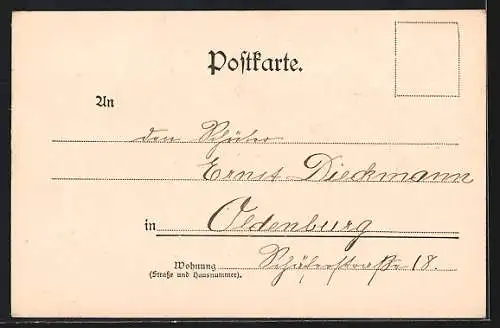 Postkarte.
An
den Schüler
Ernst Dieckmann
in Oldenburg
Wohnung Schäferstraße 18.
(Straße und Hausnummer).